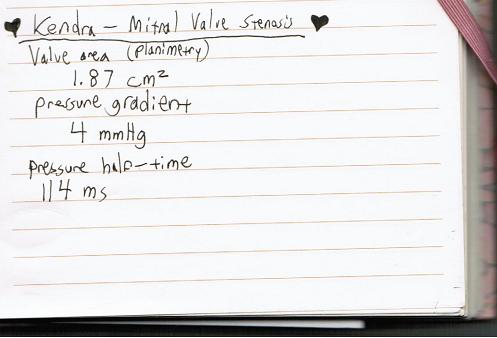 ♥ Kendra – Mitral Valve Stenosis ♥
Valve area (planimetry)
1.87 cm²
pressure gradient
4 mmHg
pressure half-time
114 ms